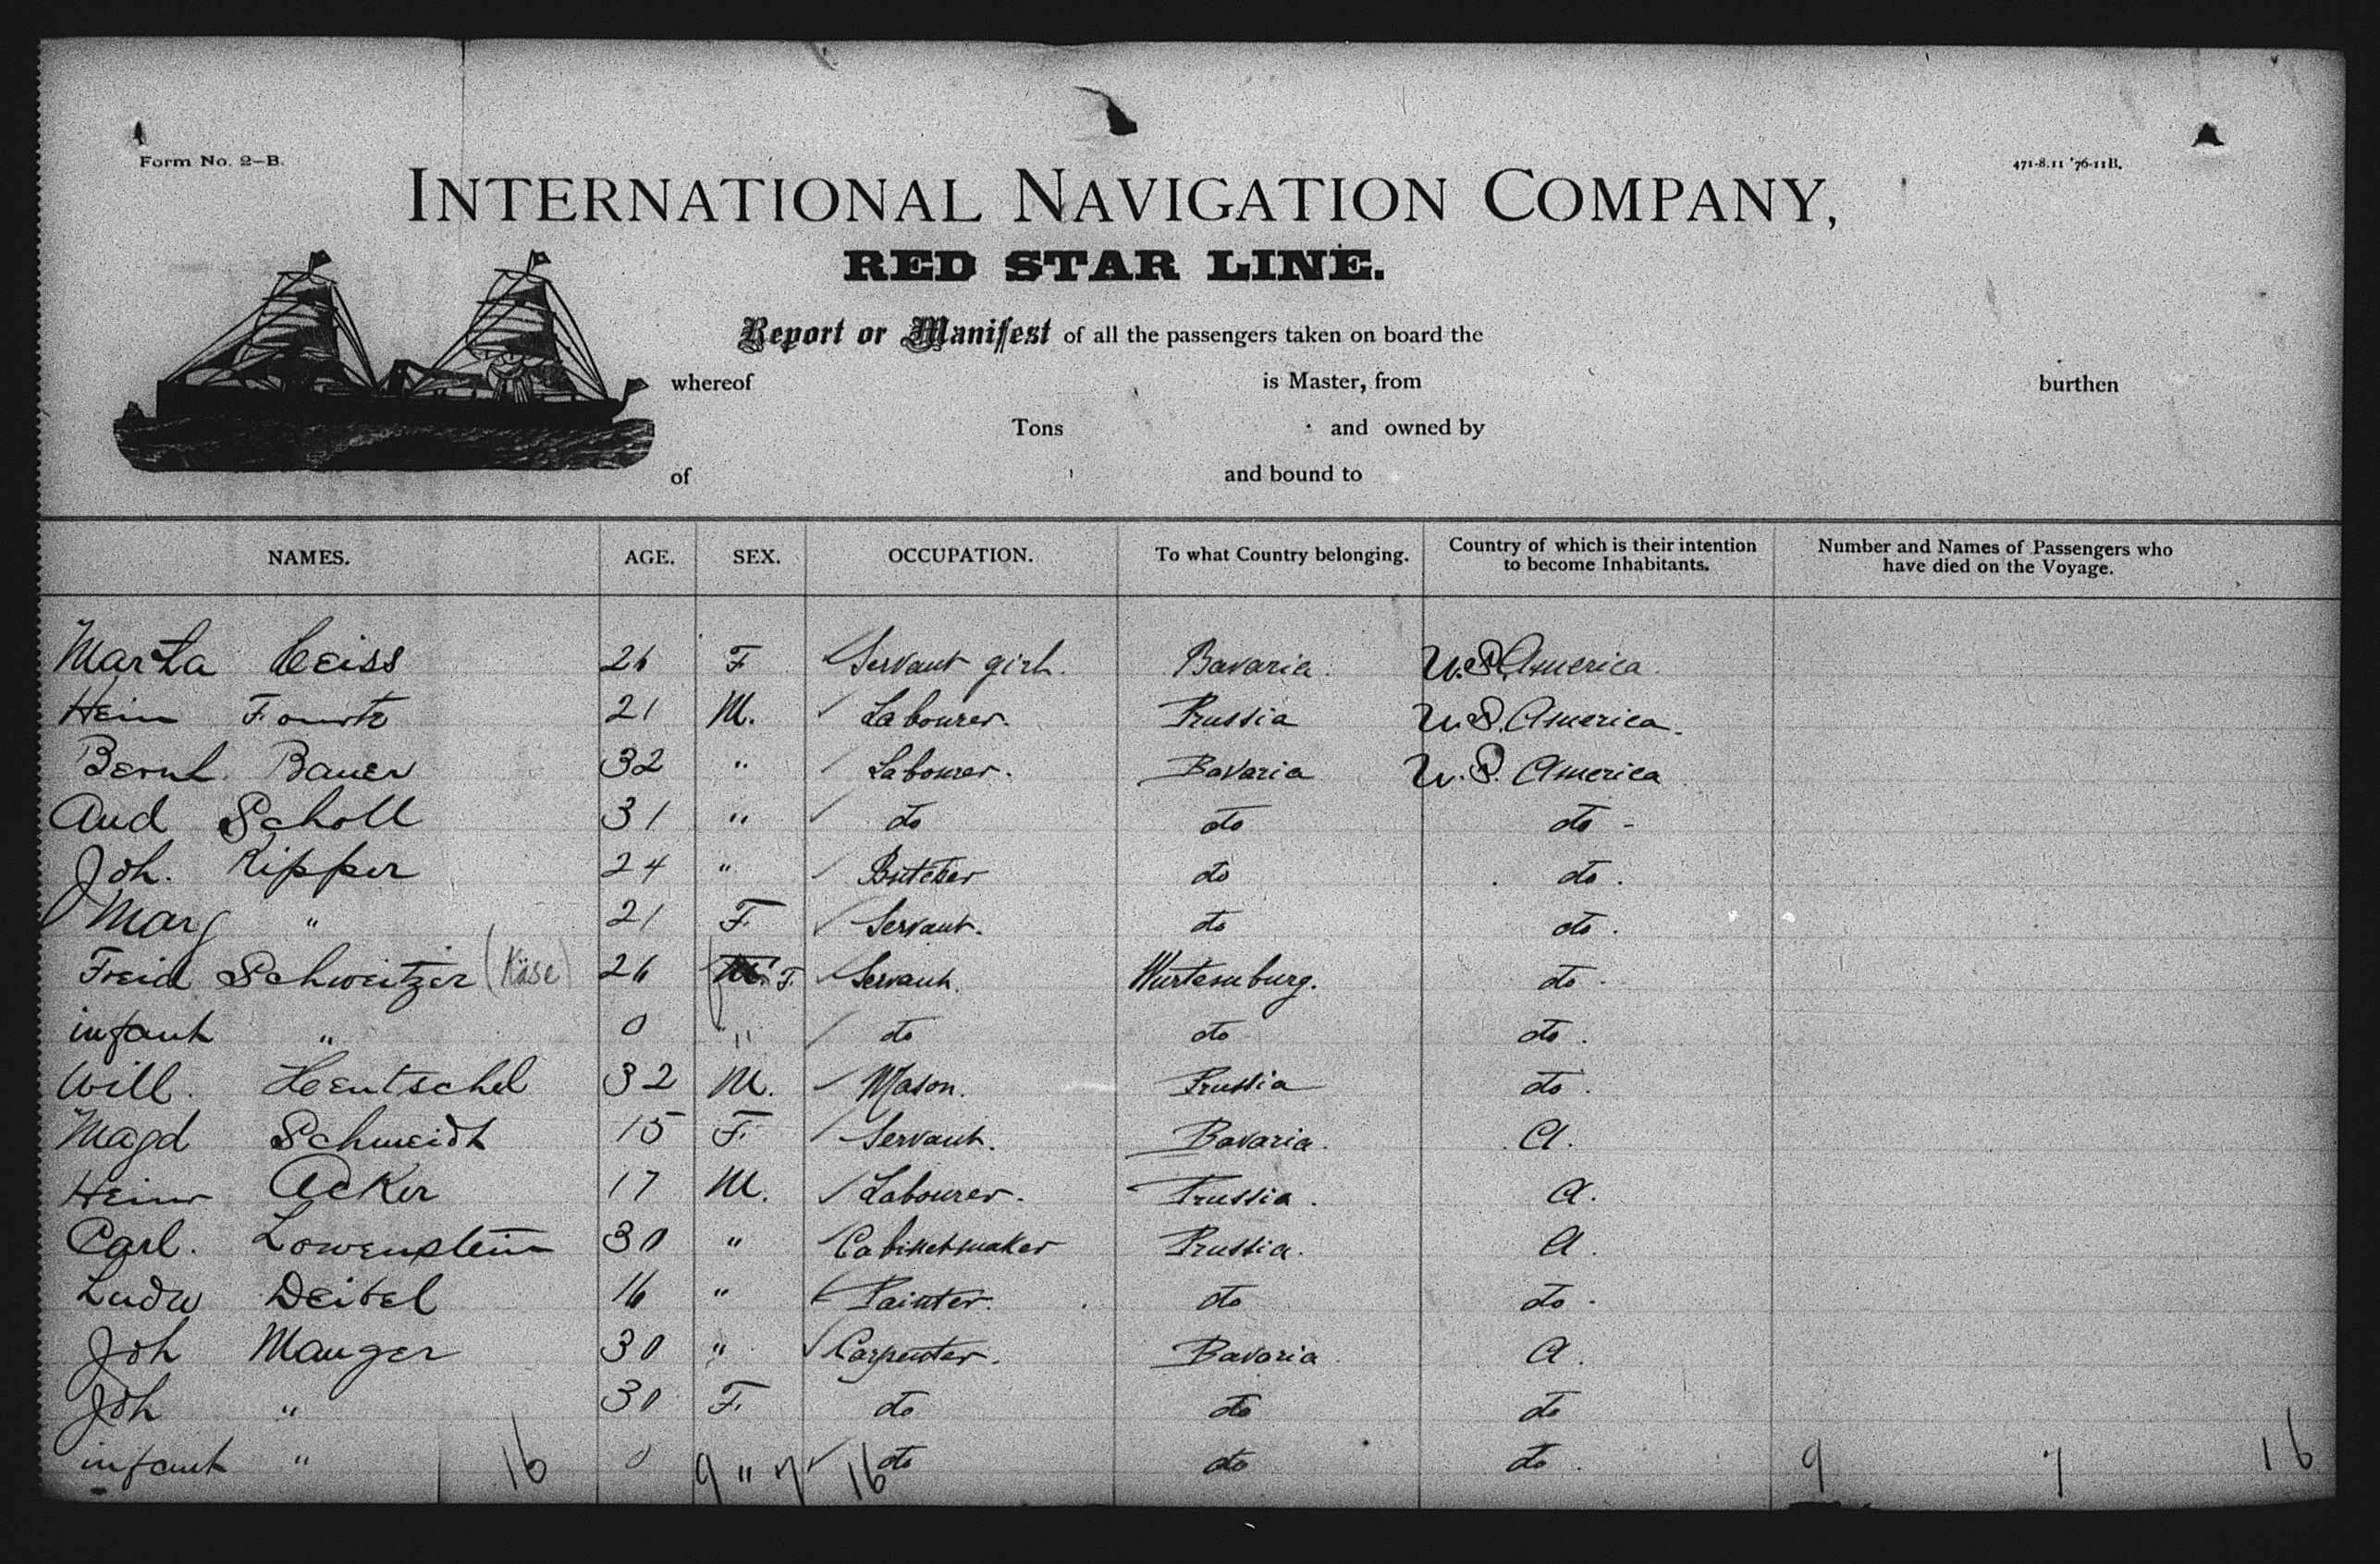 Form No. 2–B.
471-8.11 '76-11B.
INTERNATIONAL NAVIGATION COMPANY,
RED STAR LINE.
Report or Manifest of all the passengers taken on board the
whereof is Master, from burthen
Tons and owned by
of and bound to
NAMES. AGE. SEX. OCCUPATION. To what Country belonging. Country of which is their intention to become Inhabitants. Number and Names of Passengers who have died on the Voyage.
Marta 26 F Servant girl. Bavaria. U.S. America.
Hein 21 M. Labourer. Prussia U.S. America.
Bernh. Bauer 32 " Labourer. Bavaria U.S. America
And Scholl 31 " do do do -
Joh. Kipper 24 " Butcher do do.
Marg " 21 F. Servant. do do.
Freid Schweitzer (Käse) 26 F. Servant. Wurtemburg. do.
infant " 0 " do do do.
Will. Hentschel 32 M. Mason. Prussia do.
Magd Schmeidt 15 F. Servant. Bavaria. A.
Heinr Acker 17 M. Labourer. Prussia. A.
Carl. Lowenstein 30 " Cabinetmaker Prussia. A.
Ludw Deibel 16 " Painter. do do.
Joh Mauger 30 " Carpenter. Bavaria A.
Joh " 30 F. do do do
infant " 0 " do do do.
16 9 7 16 9 7 16